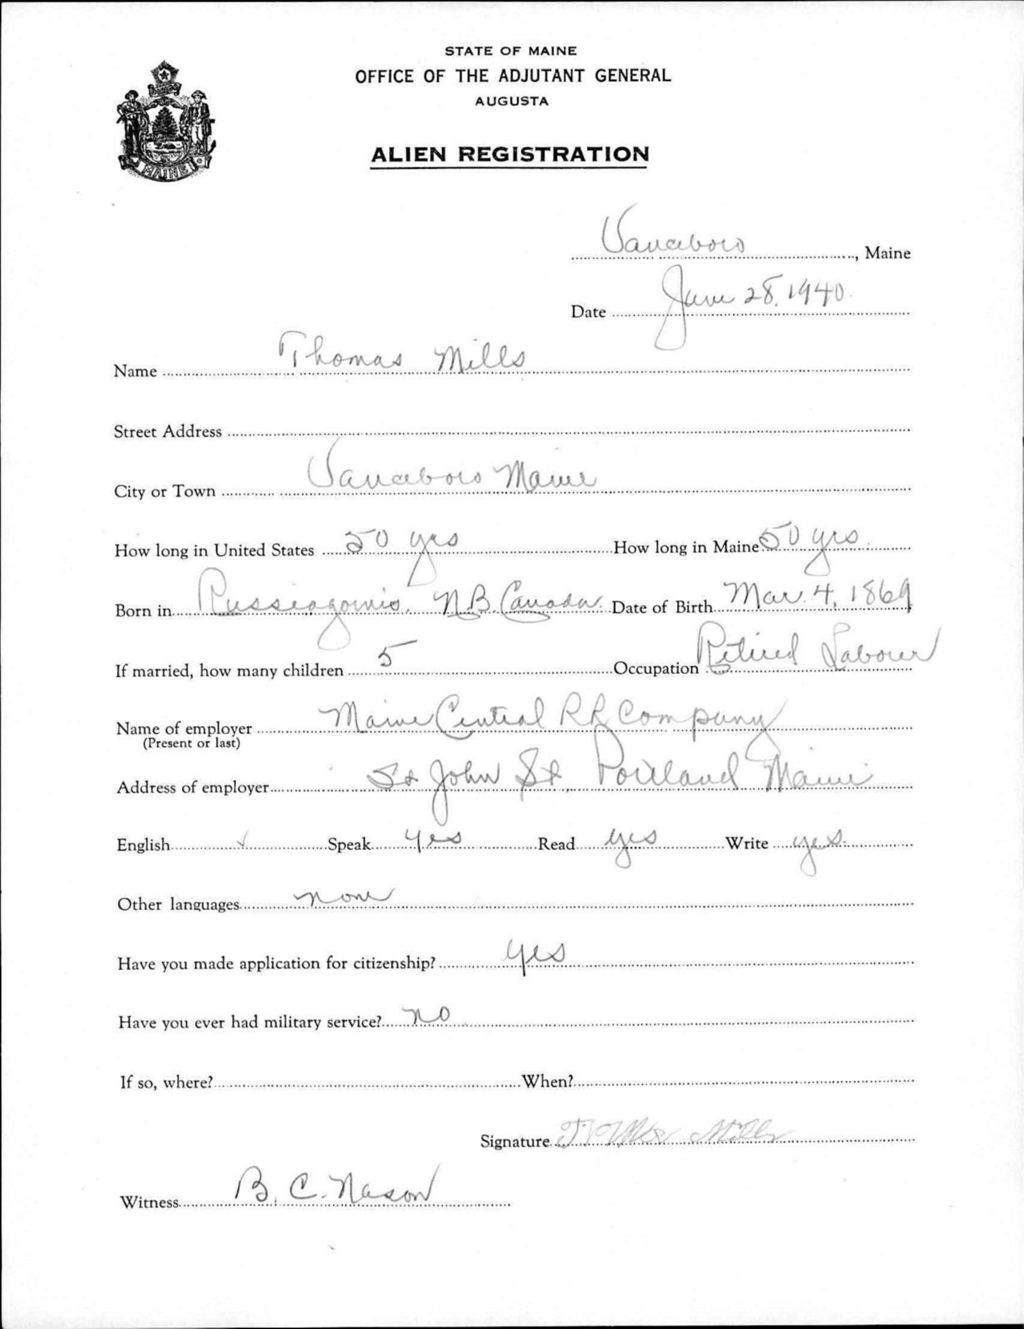 STATE OF MAINE
OFFICE OF THE ADJUTANT GENERAL
AUGUSTA
ALIEN REGISTRATION
MAINE
Vanceboro, Maine
Date June 28, 1940.
Name Thomas Mills
Street Address
City or Town Vanceboro Maine
How long in United States 50 yrs How long in Maine 50 yrs.
Born in Russiagornis, N B Canada. Date of Birth Mar. 4, 1869
If married, how many children 5 Occupation Retired Labourer
Name of employer Maine Central RR Company
(Present or last)
Address of employer St John St., Portland Maine
English ✓ Speak yes Read yes Write yes.
Other languages none
Have you made application for citizenship? yes
Have you ever had military service? no
If so, where? When?
Signature Mills
Witness B. C. Nason